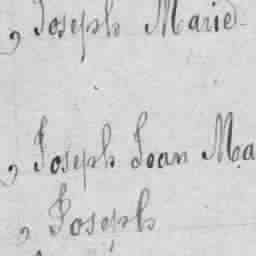 , Joseph Marie
, Joseph Jean Ma
, Joseph